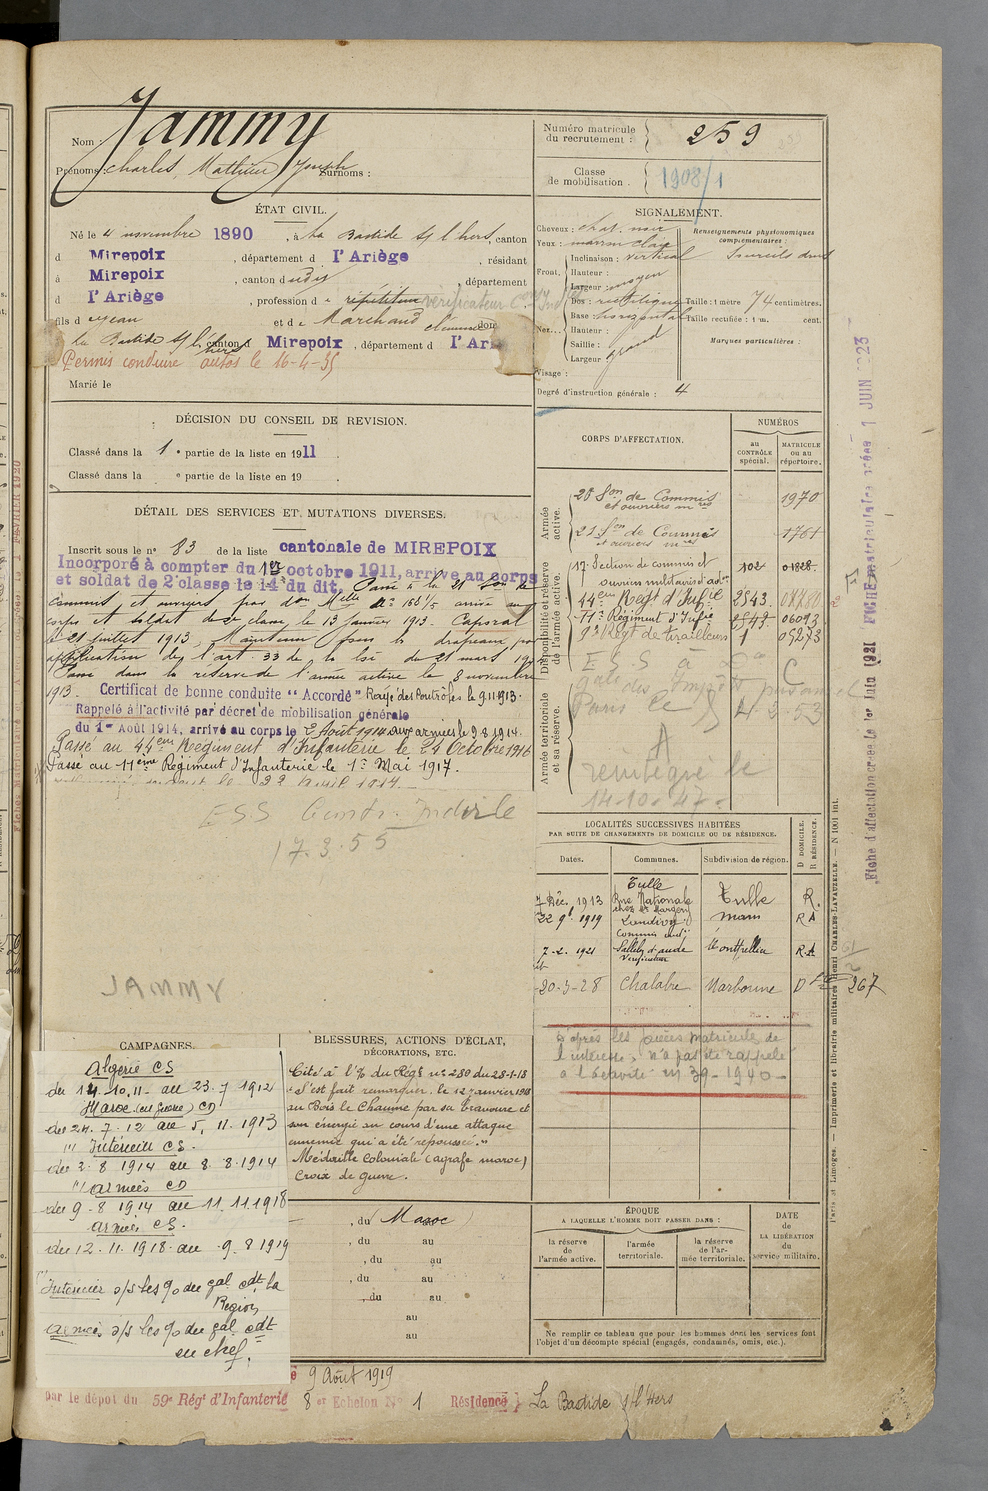 Nom : Jammy
Prénoms : Charles, Mathieu Joseph Surnoms :
Numéro matricule du recrutement : 259
Classe de mobilisation . 1908/1
ÉTAT CIVIL.
Né le 4 novembre 1890 , à La Bastide s/ l'hers, canton
d Mirepoix , département d l'Ariège , résidant
à Mirepoix , canton d udit , département
d l'Ariège , profession d e répétiteur vérificateur
fils d e Jean et d e Marchand Clémence dom
La Bastide s/ l'hers canton d Mirepoix , département d l'Ar
Permis conduire autos le 16-4-35
Marié le
SIGNALEMENT.
Cheveux : chat. noir
Yeux : marron clair
Front. Inclinaison : vertical
Hauteur :
Largeur : moyen
Nez... Dos : rectiligne
Base : horizontal
Hauteur :
Saillie :
Largeur grand
Visage :
Renseignements physionomiques complémentaires :
Sourcils
Taille : 1 mètre 74 centimètres.
Taille rectifiée : 1 m. cent.
Marques particulières :
Degré d'instruction générale : 4
DÉCISION DU CONSEIL DE REVISION.
Classé dans la 1 e partie de la liste en 1911
Classé dans la e partie de la liste en 19
DÉTAIL DES SERVICES ET MUTATIONS DIVERSES.
Inscrit sous le n° 83 de la liste cantonale de MIREPOIX
Incorporé à compter du 1er octobre 1911, arrivé au corps
et soldat de 2e classe le 14 du dit. Passé à la 21 Son de
commis et ouvriers par don Mlle N° 156 1/5 arrivé au
corps et soldat de 2e classe le 13 janvier 1913. Caporal
le 21 juillet 1913. Maintenu sous les drapeaux par
application de l'art. 33 de la loi du 21 mars 19
Passé dans la réserve de l'armée active le 8 novembre
1913. Certificat de bonne conduite "Accordé" Rayé des Contrôles le 9.11.1913.
Rappelé à l'activité par décret de mobilisation générale
du 1er Août 1914, arrivé au corps le 2 Août 1914. aux armées le 9.8.1914.
Passé au 44eme Régiment d'Infanterie le 24 Octobre 1916
Passé au 11ème Régiment d'Infanterie le 1er Mai 1917.
E.S.S Contr. Indir le
17.3.55
JAMMY
CORPS D'AFFECTATION.
NUMÉROS
au CONTRÔLE spécial.
MATRICULE ou au répertoire.
Armée active.
20 Son de Commis et ouvriers mres 1970
21 Son de Commis et ouvriers mres 1761
Disponibilité et réserve de l'armée active.
17 Section de commis et ouvriers militaires d'adon 102 01828
44eme Régt d'Infie 2543
11e Régiment d'Infie 2543 06093
9e Régt de tirailleurs 1 05273
Armée territoriale et sa réserve.
E.S.S à
Paris le 4.2.53
A
réintégré le
14-10-47
LOCALITÉS SUCCESSIVES HABITÉES
PAR SUITE DE CHANGEMENTS DE DOMICILE OU DE RÉSIDENCE.
Dates. Communes. Subdivision de région. D DOMICILE. R RÉSIDENCE.
7 Déc. 1913 Tulle Rue Nationale Tulle R.
22 9b 1919 Landivy Commis ind. Mam RA
7-2. 1921 Sallèles d'aude Vérificateur Montpellier R.A
20-3-28 Chalabre Narbonne D 267
d'après les pièces matricules de
l'intéressé, n'a pas été rappelé
à l'activité en 39-1940-
CAMPAGNES.
Algérie CS
du 14.10.11 au 23.7 1912
Maroc (en guerre) CD
du 24.7.12 au 5.11.1913
Intérieur CS.
du 2.8 1914 au 8.8.1914
armées CD
du 9.8 1914 au 11.11.1918
armées CS.
du 12.11.1918 au 9.8 1919
Intérieur d/s les 90 du gal cdt la
Région
armées d/s les 90 du gal cdt
en chef.
BLESSURES, ACTIONS D'ÉCLAT,
DÉCORATIONS, ETC.
Cité à l'% du Régt n° 280 du 28-1-18
"S'est fait remarquer le 12 janvier 1918
au Bois le Chaume par sa bravoure et
son énergie au cours d'une attaque
ennemie qui a été repoussé."
Médaille Coloniale (agrafe maroc)
Croix de guerre.
, du ( Maroc )
, du au
, du au
, du au
, du au
au
au
ÉPOQUE
A LAQUELLE L'HOMME DOIT PASSER DANS :
la réserve de l'armée active.
l'armée territoriale.
la réserve de l'armée territoriale.
DATE de LA LIBÉRATION du service militaire.
Ne remplir ce tableau que pour les hommes dont les services font
l'objet d'un décompte spécial (engagés, condamnés, omis, etc.).
9 Août 1919
par le dépôt du 59e Régt d'Infanterie 8 er Echelon N° 1 Résidence } La Bastide s/ l'Hers
Paris et Limoges. — Imprimerie et librairie militaires Henri CHARLES-LAVAUZELLE. — N 1001 int.
Fiche d'affectation créée le 1er Juin 1921
FICHE matriculaire créée 1 JUIN 1923